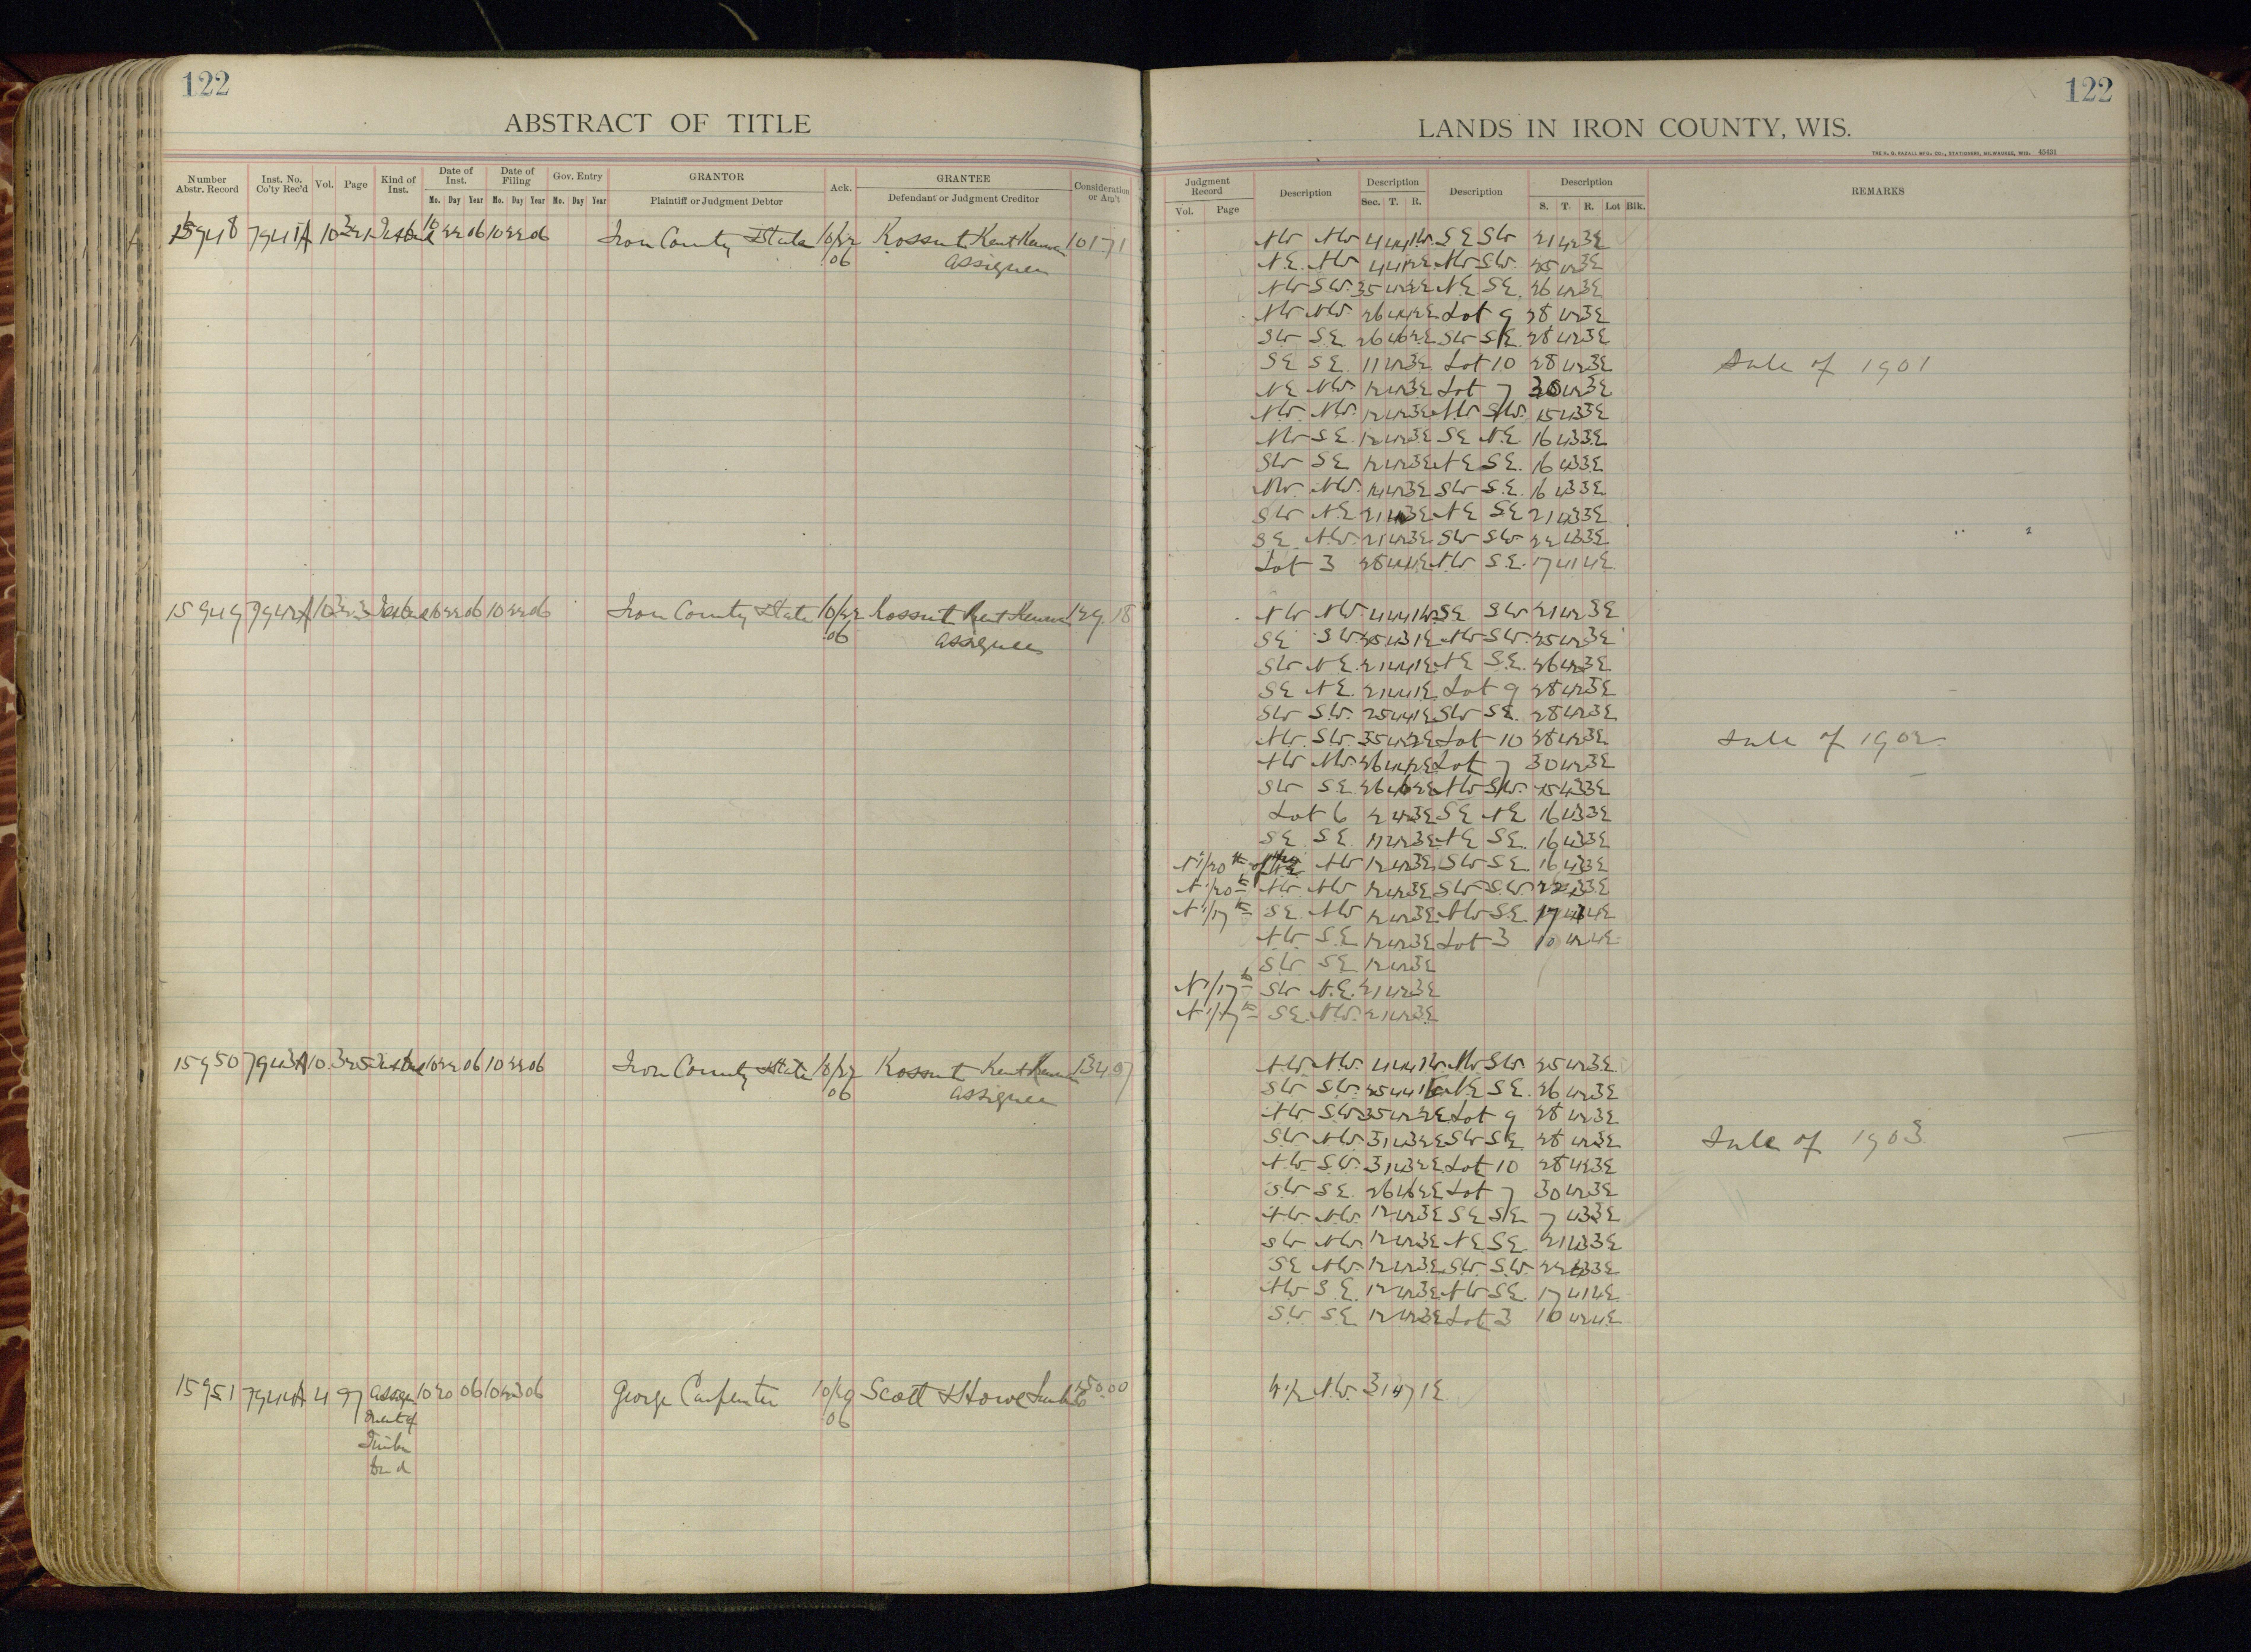 122
ABSTRACT OF TITLE
Number Abstr. Record Inst. No. Co'ty Rec'd Vol. Page Kind of Inst. Date of Inst. Mo. Day Year Date of Filing Mo. Day Year Gov. Entry Mo. Day Year GRANTOR Plaintiff or Judgment Debtor Ack. GRANTEE Defendant or Judgment Creditor Consideration or Am't
15948 7941A 10 321 10 22 06 10 22 06 Iron County & State 10/22 Kossut Kent 101.71
06 assignee
15949 7942A 10 323 10 22 06 10 22 06 Iron County & State 10/22 Kossut Kent 129.18
06 assignee
15950 7943A 10 325 10 22 06 10 22 06 Iron County & State 10/22 Kossut Kent 134.97
06 assignee
15951 7944A 4 97 Assign 10 20 06 10 23 06 George Carpenter 10/20 Scott & Howe 150.00
ment of 06
Timber
Deed
122
LANDS IN IRON COUNTY, WIS.
Judgment Record Vol. Page Description Description Sec. T. R. Description Description S. T. R. Lot Blk. REMARKS
NW NW 4 44 1W SE SW 21 42 3E
N.E. NW 4 41 2E NW SW. 25 42 3E
NW SW. 35 42 2E N.E. S.E. 26 42 3E
NW NW. 26 44 2E Lot 9 28 42 3E
SW S.E. 26 46 2E SW S.E. 28 42 3E
SE SE. 11 42 3E Lot 10 28 42 3E
Sale of 1901
NE NW. 12 42 3E Lot 7 30 42 3E
NW. NW. 12 42 3E NW SW. 15 43 3E
NW S.E. 12 42 3E SE N.E. 16 43 3E
SW SE 12 42 3E NE S.E. 16 43 3E
NW. NW. 14 42 3E SW S.E. 16 43 3E
SW N.E 21 42 3E NE SE 21 43 3E
SE. NW. 21 42 3E SW SW 22 43 3E
Lot 3 28 44 4E NW S.E. 17 41 4E
NW NW. 4 44 1W SE SW 21 42 3E
SE SW. 25 43 1E NW SW. 25 42 3E
SW N.E. 21 44 1E NE S.E. 26 42 3E
SE N.E. 21 44 1E Lot 9 28 42 3E
SW S.W. 25 44 1E SW SE. 28 42 3E
NW. SW. 35 42 2E Lot 10 28 42 3E
Sale of 1902
NW NW. 26 44 2E Lot 7 30 42 3E
SW S.E. 26 46 2E NW SW. 15 43 3E
Lot 6 2 42 3E SE NE 16 43 3E
SE S.E. 11 42 3E NE S.E. 16 43 3E
N 1/20th of NE NW 12 42 3E SW SE. 16 43 3E
N 1/20th NW NW 12 42 3E SW S.W. 22 43 3E
N 1/17th SE. NW 12 42 3E NW S.E. 17 41 4E
NW. S.E 12 42 3E Lot 3 10 42 4E
SW SE 12 42 3E
N 1/17th SW N.E. 21 42 3E
N 1/17th SE. NW. 21 42 3E
NW NW. 4 44 1W NW SW. 25 42 3E
SW SW. 25 44 1E NE SE. 26 42 3E
NW SW 35 42 2E Lot 9 28 42 3E
SW NW. 31 43 2E SW SE 28 42 3E
Sale of 1903
NW. SW. 31 43 2E Lot 10 28 42 3E
SW SE. 26 46 2E Lot 7 30 42 3E
NW. NW. 12 42 3E SE SE 7 43 3E
SW NW. 12 42 3E NE SE. 21 43 3E
SE NW. 12 42 3E SW. S.W. 22 43 3E
NW S.E. 12 42 3E NW SE. 17 41 4E
SW. S.E. 12 42 3E Lot 3 10 42 4E
W 1/2 NW. 31 47 1E